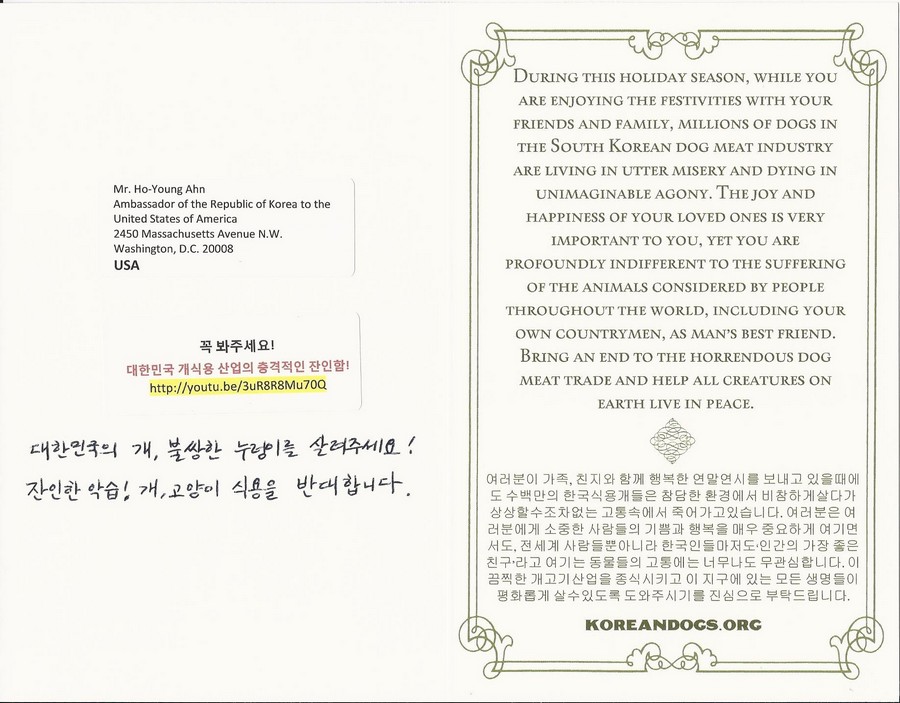 Mr. Ho-Young Ahn
Ambassador of the Republic of Korea to the
United States of America
2450 Massachusetts Avenue N.W.
Washington, D.C. 20008
USA
꼭 봐주세요!
대한민국 개식용 산업의 충격적인 잔인함!
http://youtu.be/3uR8R8Mu70Q
대한민국의 개, 불쌍한 누렁이를 살려주세요!
잔인한 악습! 개,고양이 식용을 반대합니다.
During this holiday season, while you
are enjoying the festivities with your
friends and family, millions of dogs in
the South Korean dog meat industry
are living in utter misery and dying in
unimaginable agony. The joy and
happiness of your loved ones is very
important to you, yet you are
profoundly indifferent to the suffering
of the animals considered by people
throughout the world, including your
own countrymen, as man's best friend.
Bring an end to the horrendous dog
meat trade and help all creatures on
earth live in peace.
여러분이 가족, 친지와 함께 행복한 연말연시를 보내고 있을때에
도 수백만의 한국식용개들은 참담한 환경에서 비참하게살다가
상상할수조차없는 고통속에서 죽어가고있습니다. 여러분은 여
러분에게 소중한 사람들의 기쁨과 행복을 매우 중요하게 여기면
서도, 전세계 사람들뿐아니라 한국인들마저도·인간의 가장 좋은
친구·라고 여기는 동물들의 고통에는 너무나도 무관심합니다. 이
끔찍한 개고기산업을 종식시키고 이 지구에 있는 모든 생명들이
평화롭게 살수있도록 도와주시기를 진심으로 부탁드립니다.
KOREANDOGS.ORG